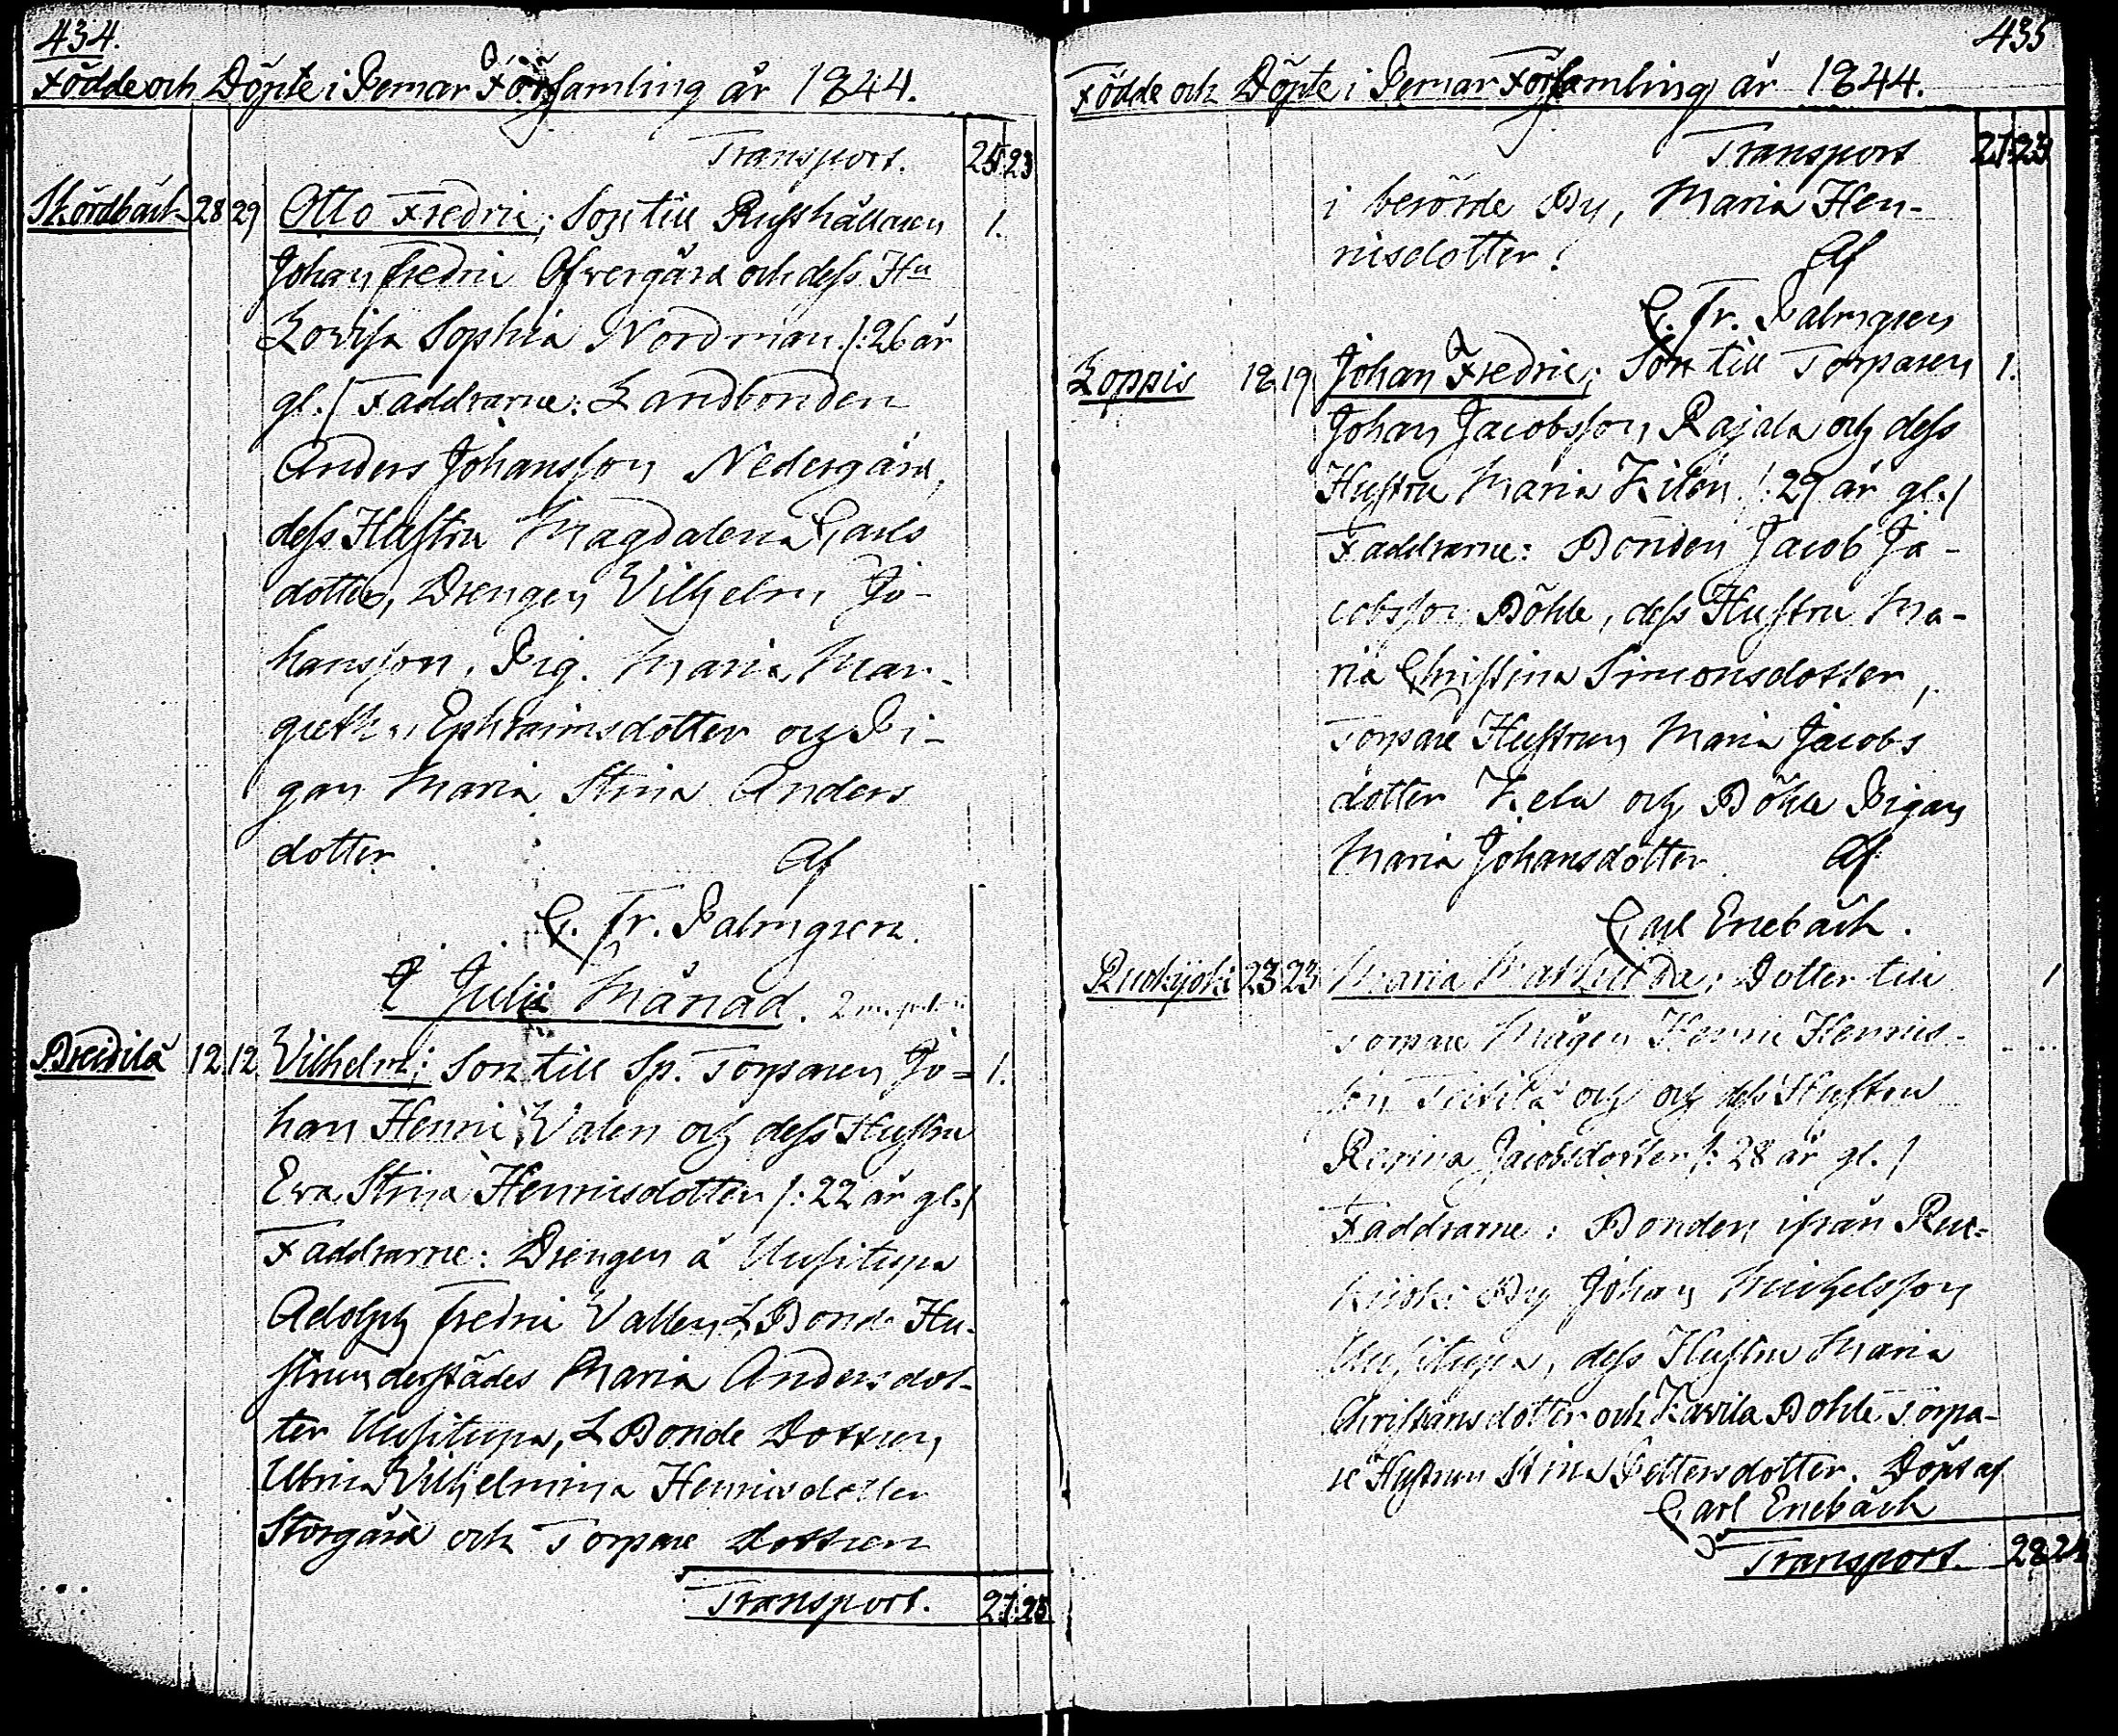 434.
Födde och Döpte i Pemar Församling år 1844.
Transport. 25 23
Skördbäck 28 29 Otto Fredric; Son till Rusthållaren 1.
Johan Fredric Ofvergård och dess Hu
Lovisa Sophia Nordman /: 26 år
gl./ Faddrarne: Landbonden
Anders Johansson Nedergård,
dess Hustru Magdalena Carls
dotter, Drengen Vilhelm Jo-
hansson, Pig. Maria Mar-
gretha Ephraimsdotter och Pi-
gan Maria Stina Anders
dotter. Af
C. Fr. Palmgren.
I Julii Månad.
12 12 Vilhelm; Son till Sp. Torparen Jo= 1.
han Henric Valen och dess Hustru
Eva Stina Henricsdotter /: 22 år gl./
Faddrarne: Drengen å Uusitupa
Adolph Fredric Vallen, L Bonde Hu-
strun derstädes Maria Andersdot-
ter Uusitupa, L Bonde Dottren
Ulrica Vilhelmina Henricsdotter
Storgård och Torpare dottren
Transport. 27 23
435
Födde och Döpte i Pemar Församling år 1844.
Transport 27 23
i berörde By, Maria Hen-
ricsdotter. Af
C. Fr. Palmgren
Loppis 18 19 Johan Fredric; Son till Torparen 1.
Johan Jacobsson Rajala och dess
Hustru Maria /: 29 år gl./
Faddrarne: Bonden Jacob Ja-
cobsson Böhle, dess Hustru Ma-
ria Christina Simonsdotter,
Torpare Hustrun Maria Jacobs
dotter och Böhle Pigan
Maria Johansdotter. Af
Carl Enebäck.
Ruokijoki 23 23 Maria Mathilda; Dotter till 1
Torpare Mågen Henric Henrics-
son och och dess Hustru
Regina Jacobsdotter /: 28 år gl./
Faddrarne: Bonden ifrån Ruo-
kijoki By Johan Michelsson
Uusitupa, dess Hustru Maria
Christiansdotter och Kavila Bohle Torpa-
re Hustrun Stina Pettersdotter. Döpt af
Carl Enebäck
Transport. 28 24